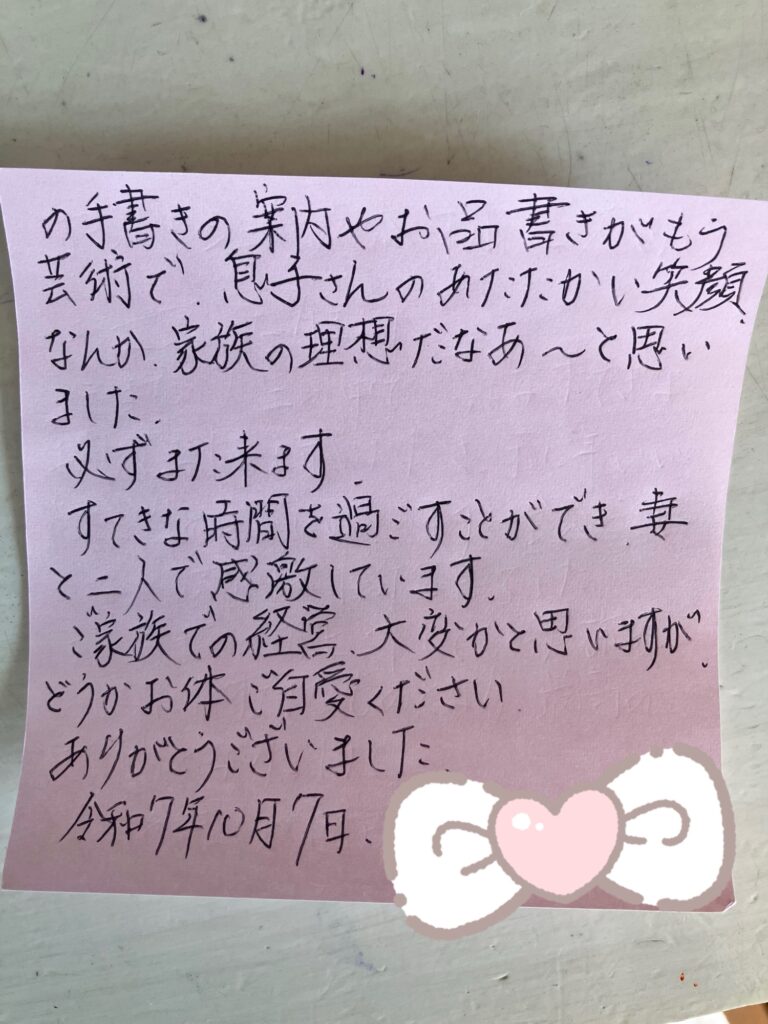 の手書きの案内やお品書きがもう
芸術で、息子さんのあたたかい笑顔、
なんか、家族の理想だなあ〜と思い
ました。
必ずまた来ます。
すてきな時間を過ごすことができ、妻
と二人で感激しています。
ご家族での経営、大変かと思いますが、
どうかお体ご自愛ください。
ありがとうございました。
令和7年10月7日、